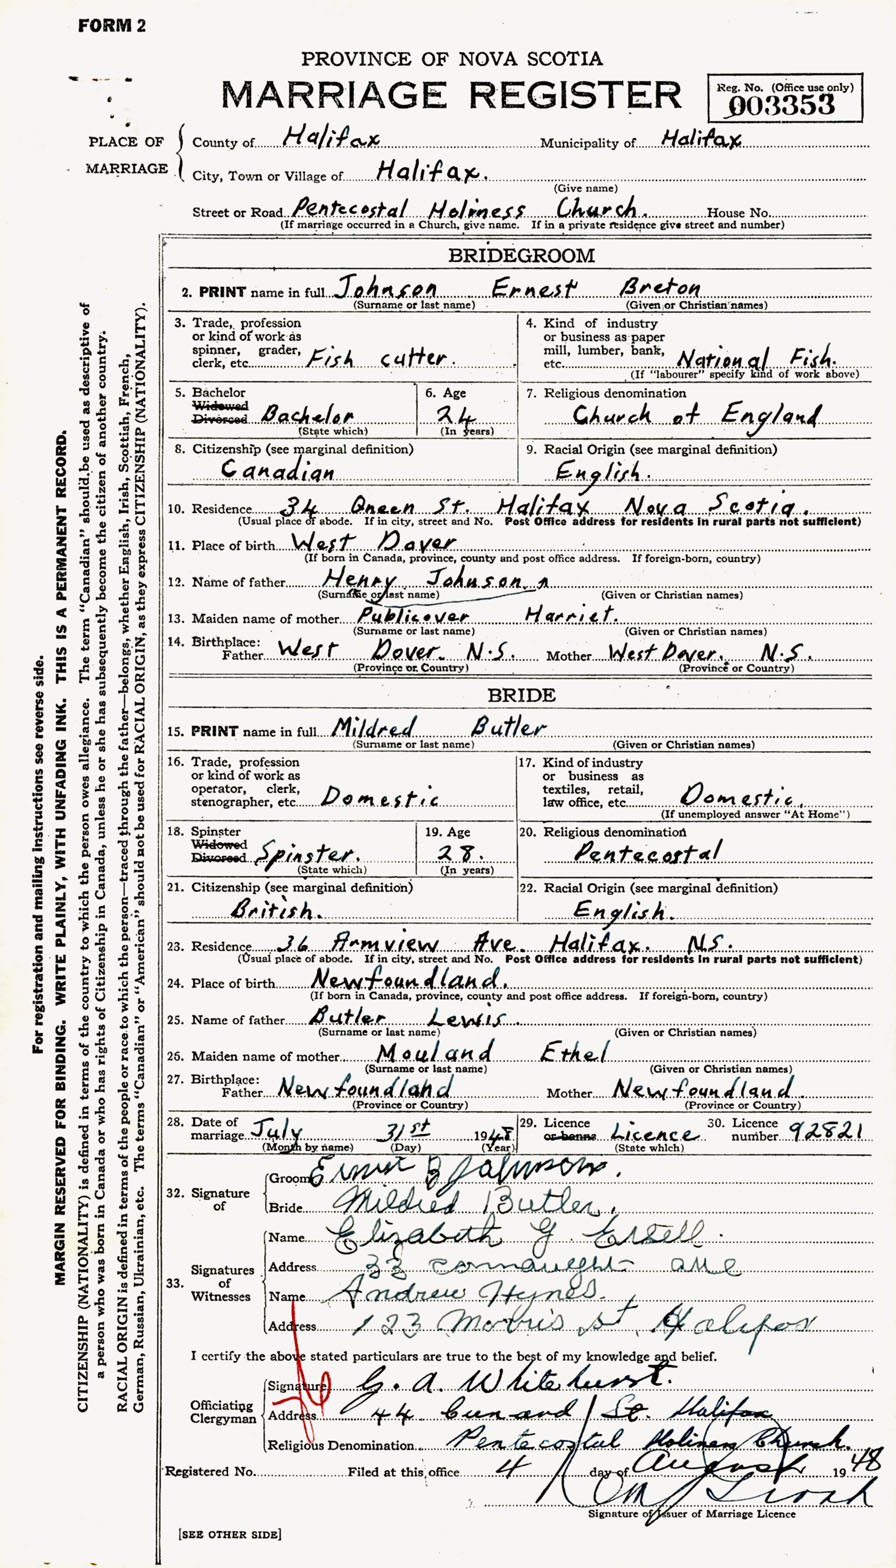 FORM 2
PROVINCE OF NOVA SCOTIA
MARRIAGE REGISTER
Reg. No. (Office use only)
003353
PLACE OF MARRIAGE
County of Halifax Municipality of Halifax
City, Town or Village of Halifax.
(Give name)
Street or Road Pentecostal Holiness Church. House No.
(If marriage occurred in a Church, give name. If in a private residence give street and number)
BRIDEGROOM
2. PRINT name in full Johnson Ernest Breton
(Surname or last name) (Given or Christian names)
3. Trade, profession
or kind of work as
spinner, grader,
clerk, etc. Fish cutter.
4. Kind of industry
or business as paper
mill, lumber, bank,
etc. National Fish.
(If "labourer" specify kind of work above)
5. Bachelor
Widowed
Divorced Bachelor
(State which)
6. Age
24
(In years)
7. Religious denomination
Church of England
8. Citizenship (see marginal definition)
Canadian
9. Racial Origin (see marginal definition)
English.
10. Residence 34 Queen St. Halifax Nova Scotia.
(Usual place of abode. If in city, street and No. Post Office address for residents in rural parts not sufficient)
11. Place of birth West Dover
(If born in Canada, province, county and post office address. If foreign-born, country)
12. Name of father Henry Johnson
(Surname or last name) (Given or Christian names)
13. Maiden name of mother Publicover Harriet.
(Surname or last name) (Given or Christian names)
14. Birthplace:
Father West Dover N.S. Mother West Dover. N.S.
(Province or Country) (Province or Country)
BRIDE
15. PRINT name in full Mildred Butler
(Surname or last name) (Given or Christian names)
16. Trade, profession
or kind of work as
operator, clerk,
stenographer, etc. Domestic
17. Kind of industry
or business as
textiles, retail,
law office, etc. Domestic.
(If unemployed answer "At Home")
18. Spinster
Widowed
Divorced Spinster.
(State which)
19. Age
28.
(In years)
20. Religious denomination
Pentecostal
21. Citizenship (see marginal definition)
British.
22. Racial Origin (see marginal definition)
English.
23. Residence 36 Armview Ave. Halifax. N.S.
(Usual place of abode. If in city, street and No. Post Office address for residents in rural parts not sufficient)
24. Place of birth Newfoundland.
(If born in Canada, province, county and post office address. If foreign-born, country)
25. Name of father Butler Lewis.
(Surname or last name) (Given or Christian names)
26. Maiden name of mother Mouland Ethel
(Surname or last name) (Given or Christian names)
27. Birthplace:
Father Newfoundland Mother Newfoundland.
(Province or Country) (Province or Country)
28. Date of
marriage July 31st 1948
(Month by name) (Day) (Year)
29. Licence
or banns Licence
(State which)
30. Licence
number 92821
32. Signature of
Groom Ernest B Johnson.
Bride Mildred Butler.
33. Signatures of Witnesses
Name Elizabeth G. Ezsell.
Address 33 Connaught ave
Name Andrew Hynes.
Address 123 Morris St. Halifax
I certify the above stated particulars are true to the best of my knowledge and belief.
Officiating Clergyman
Signature G. A. Whitehurst.
Address 44 Cunard St. Halifax
Religious Denomination Pentecostal Holiness Church.
Registered No. Filed at this office 4 day of August 1948
Signature of Issuer of Marriage Licence
[SEE OTHER SIDE]
For registration and mailing instructions see reverse side.
MARGIN RESERVED FOR BINDING. WRITE PLAINLY, WITH UNFADING INK. THIS IS A PERMANENT RECORD.
CITIZENSHIP (NATIONALITY) is defined in terms of the country to which the person owes allegiance. The term "Canadian" should be used as descriptive of
a person who was born in Canada or who has rights of Citizenship in Canada, unless he or she has subsequently become the citizen of another country.
RACIAL ORIGIN is defined in terms of the people or race to which the person—traced through the father—belongs, whether English, Irish, Scottish, French,
German, Russian, Ukrainian, etc. The terms "Canadian" or "American" should not be used for RACIAL ORIGIN, as they express CITIZENSHIP (NATIONALITY).